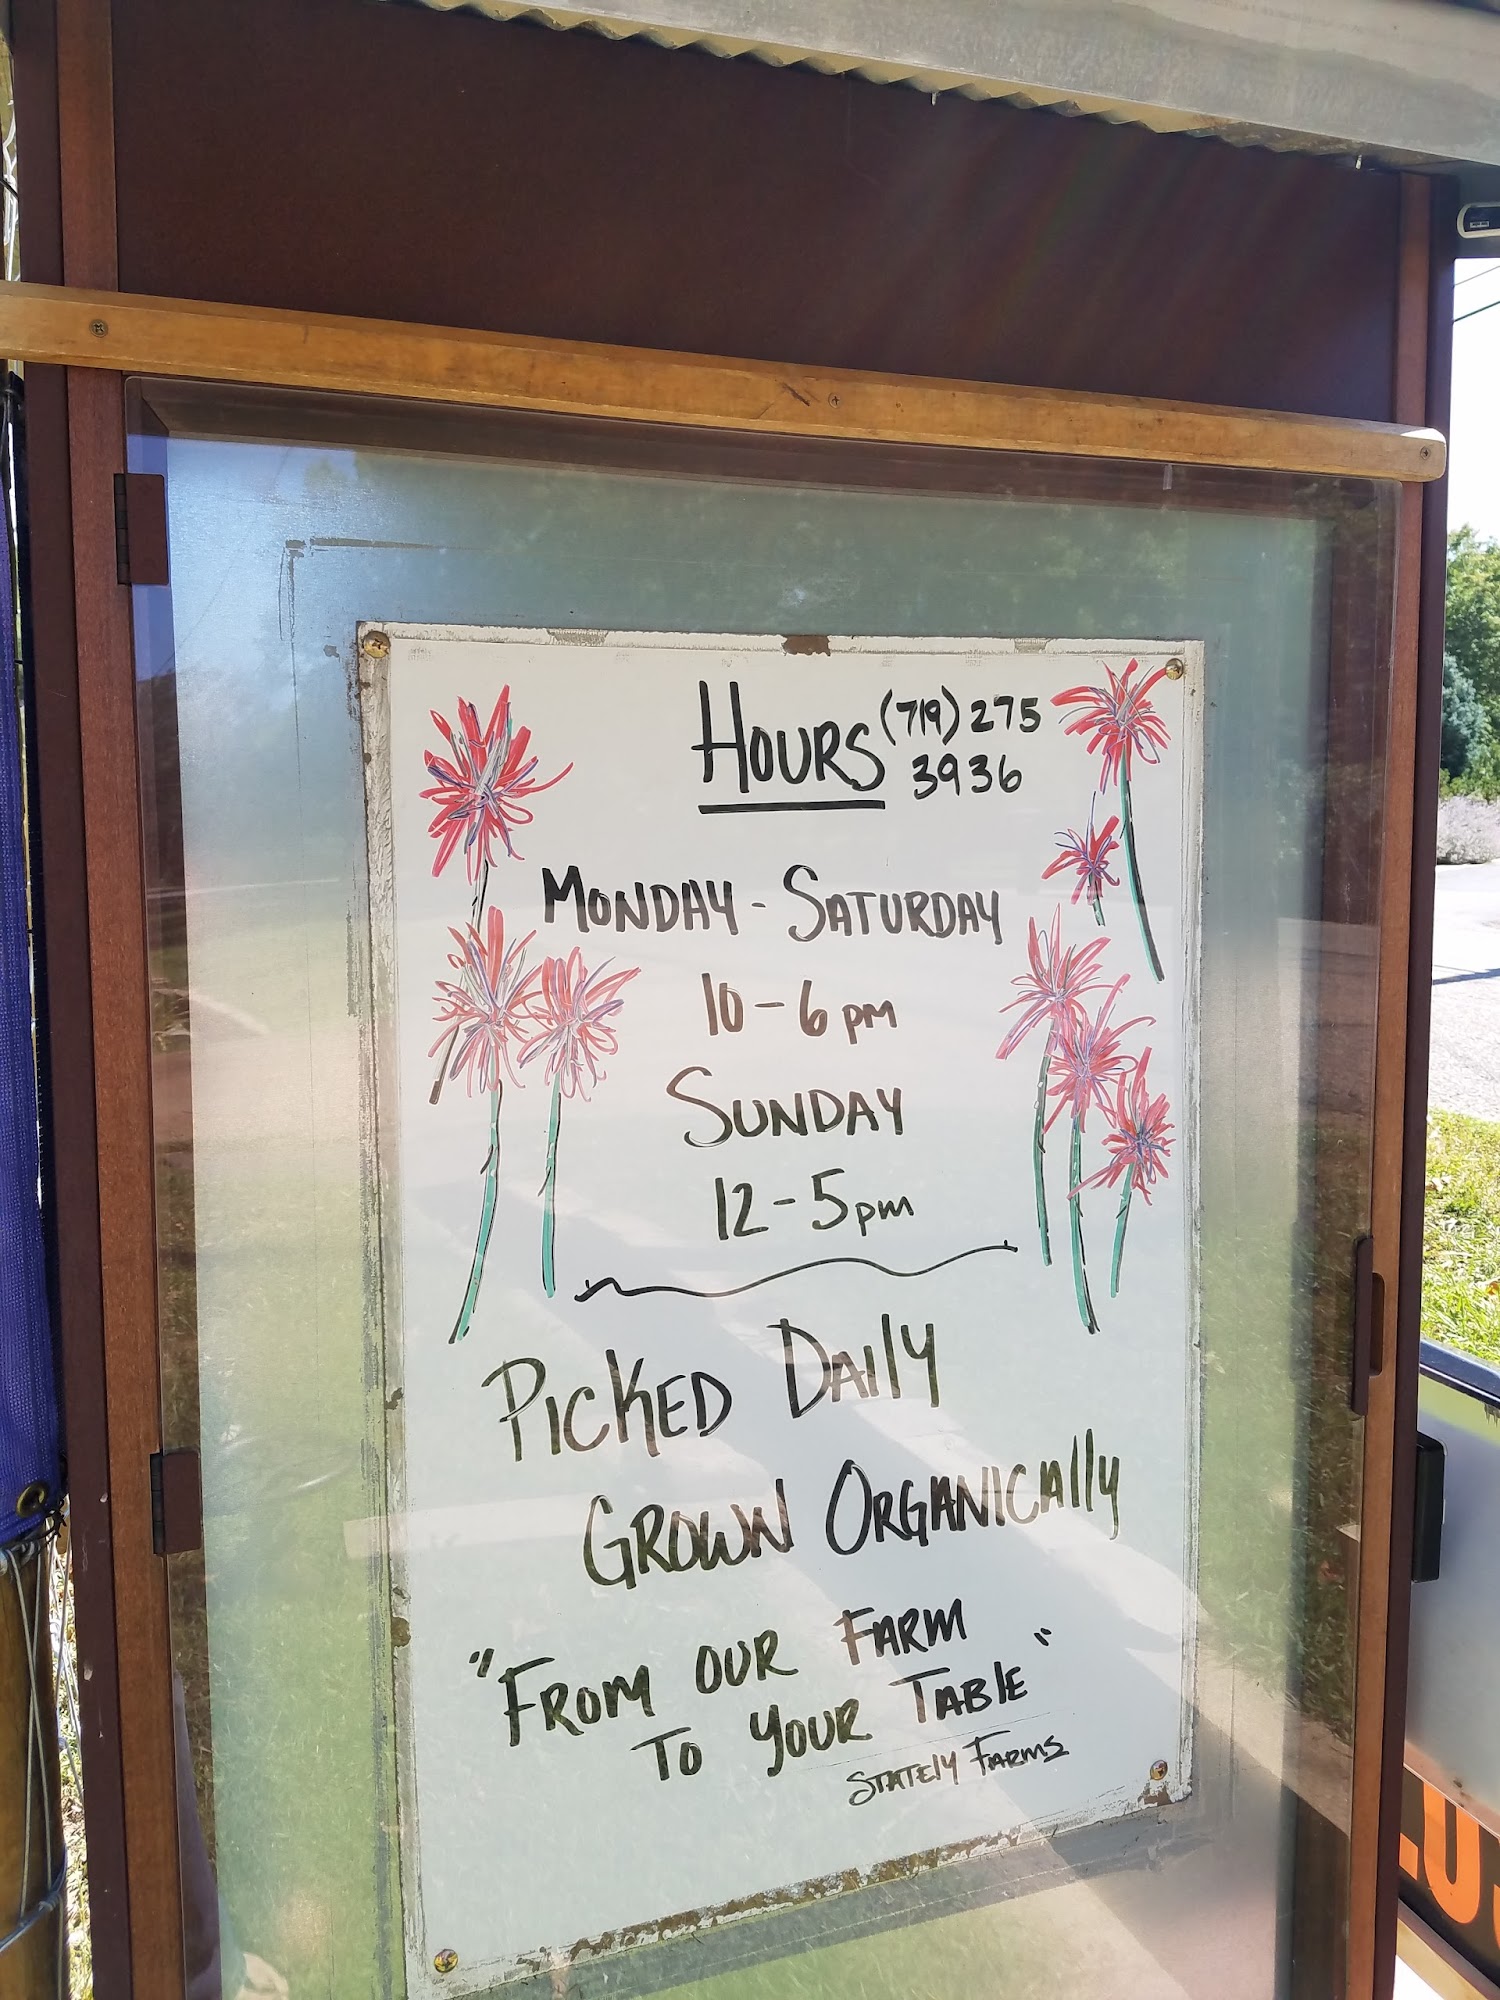 HOURS (719) 275
3936
MONDAY - SATURDAY
10 - 6 pm
SUNDAY
12 - 5 pm
PICKED DAIly
GROWN ORGANICAlly
"FROM OUR FARM
TO YOUR TABlE"
STATElY FARMS